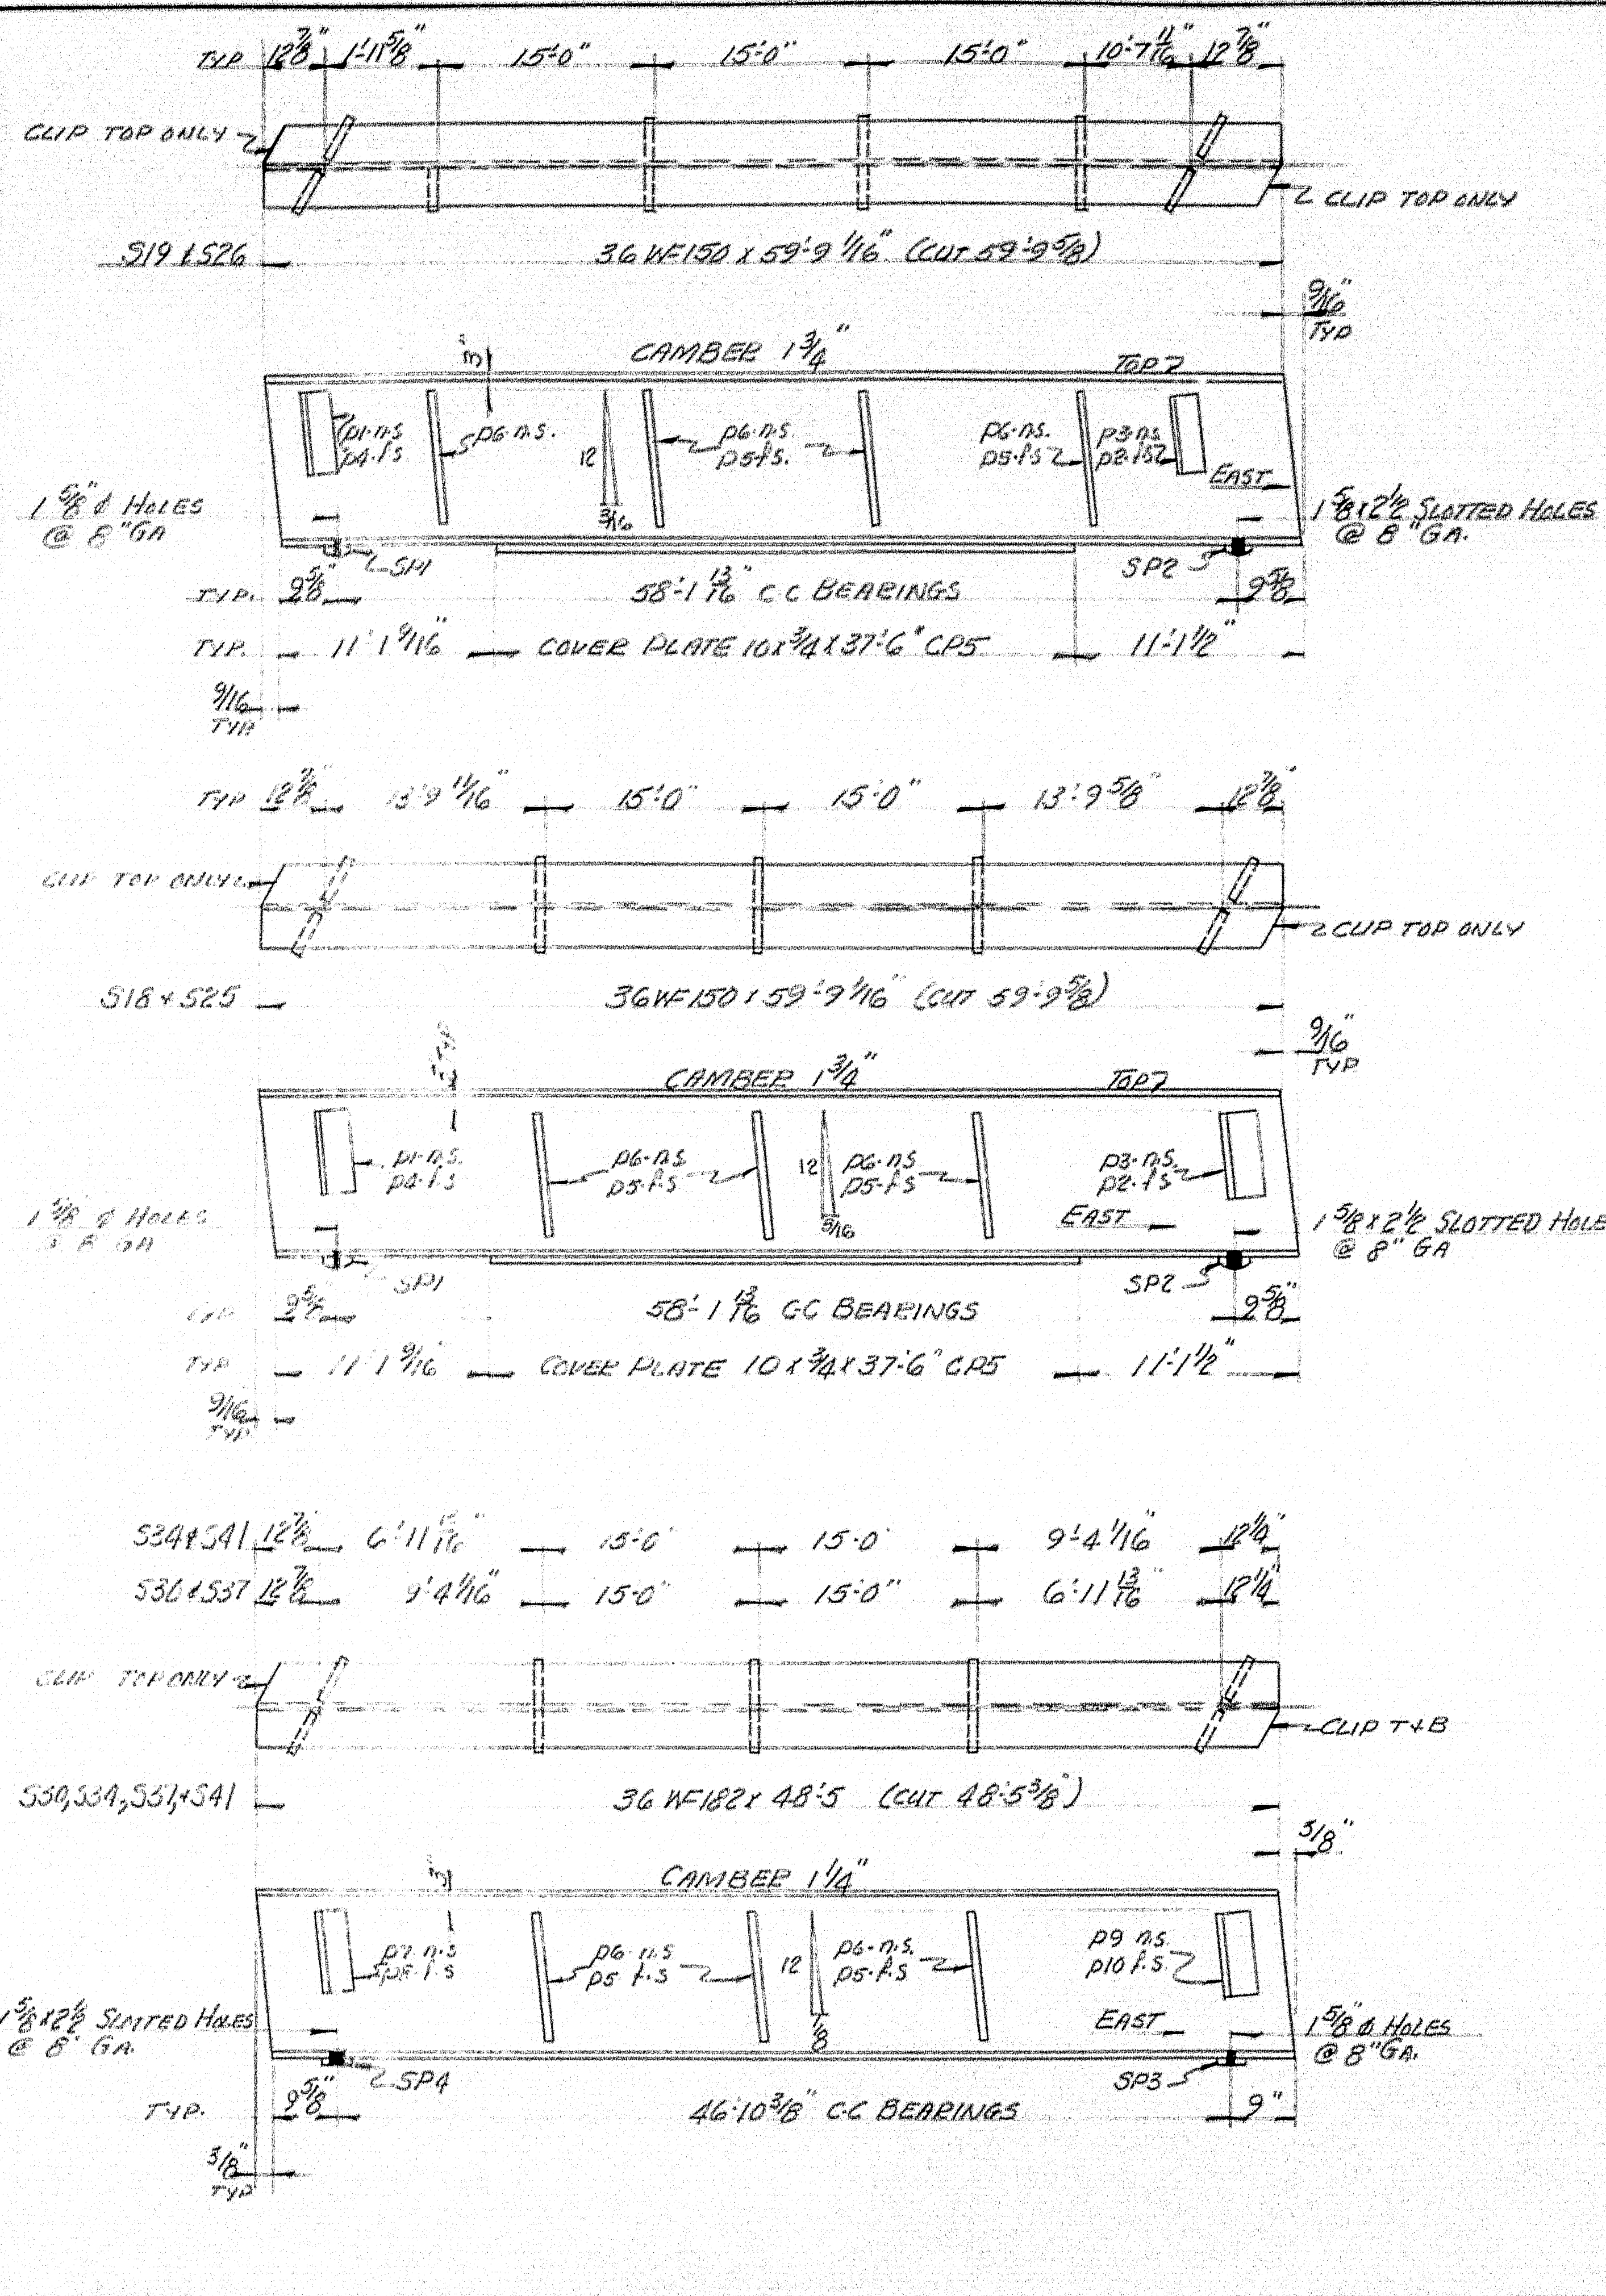 TYP 12 7/8" 1'-11 5/8" 15'-0" 15'-0" 15'-0" 10'-7 11/16 12 7/8"
CLIP TOP ONLY
CLIP TOP ONLY
S19 & S26 36 WF150 x 59'-9 1/16" (CUT 59'-9 5/8)
9/16"
TYP
3"
CAMBER 1 3/4"
TOP
p1-n.s
p4-f.s
p6-n.s.
12
3/16
p6-n.s.
p5-f.s.
p6-n.s.
p5-f.s
p3-n.s
p2-f.s
EAST
1 5/8" ⌀ HOLES
@ 8" GA
1 5/8 x 2 1/2 SLOTTED HOLES
@ 8" GA.
SP1
SP2
TYP. 9 5/8" 58'-1 13/16 C C BEARINGS 9 5/8
TYP. 11'-1 9/16" COVER PLATE 10 x 3/4 x 37'-6" CP5 11'-1 1/2"
9/16
TYP.
TYP 12 7/8" 13'-9 11/16" 15'-0" 15'-0" 13'-9 5/8" 12 7/8"
CLIP TOP ONLY
CLIP TOP ONLY
S18 & S25 36 WF150 x 59'-9 1/16" (CUT 59'-9 5/8)
9/16"
TYP
TYP
CAMBER 1 3/4"
TOP
p1-n.s.
p4-f.s
p6-n.s
p5-f.s
12
3/16
p6-n.s
p5-f.s
p3-n.s.
p2-f.s
EAST
1 5/8 ⌀ HOLES
@ 8" GA
1 5/8 x 2 1/2 SLOTTED HOLE
@ 8" GA
SP1
SP2
TYP 9 5/8 58'-1 13/16 C-C BEARINGS 9 5/8"
TYP 11'-1 9/16" COVER PLATE 10 x 3/4 x 37'-6" CP5 11'-1 1/2"
9/16
TYP
S34 & S41 12 7/8" 6'-11 13/16" 15'-0" 15'-0 9'-4 1/16" 12 1/4"
S30 & S37 12 7/8 9'-4 1/16" 15'-0" 15'-0" 6'-11 13/16" 12 1/4"
CLIP TOP ONLY
CLIP T & B
S30, S34, S37, & S41 36 WF182 x 48'-5 (CUT 48'-5 3/8")
3/8"
3"
CAMBER 1 1/4"
p7 n.s
p8-f.s
p6-n.s
p5 f.s
12
1/8
p6-n.s.
p5-f.s
p9 n.s.
p10 f.s.
EAST
1 5/8 x 2 1/2 SLOTTED HOLES
@ 8" GA.
1 5/8" ⌀ HOLES
@ 8" GA.
SP4
SP3
TYP. 9 5/8" 46'-10 3/8" C-C BEARINGS 9"
3/8"
TYP